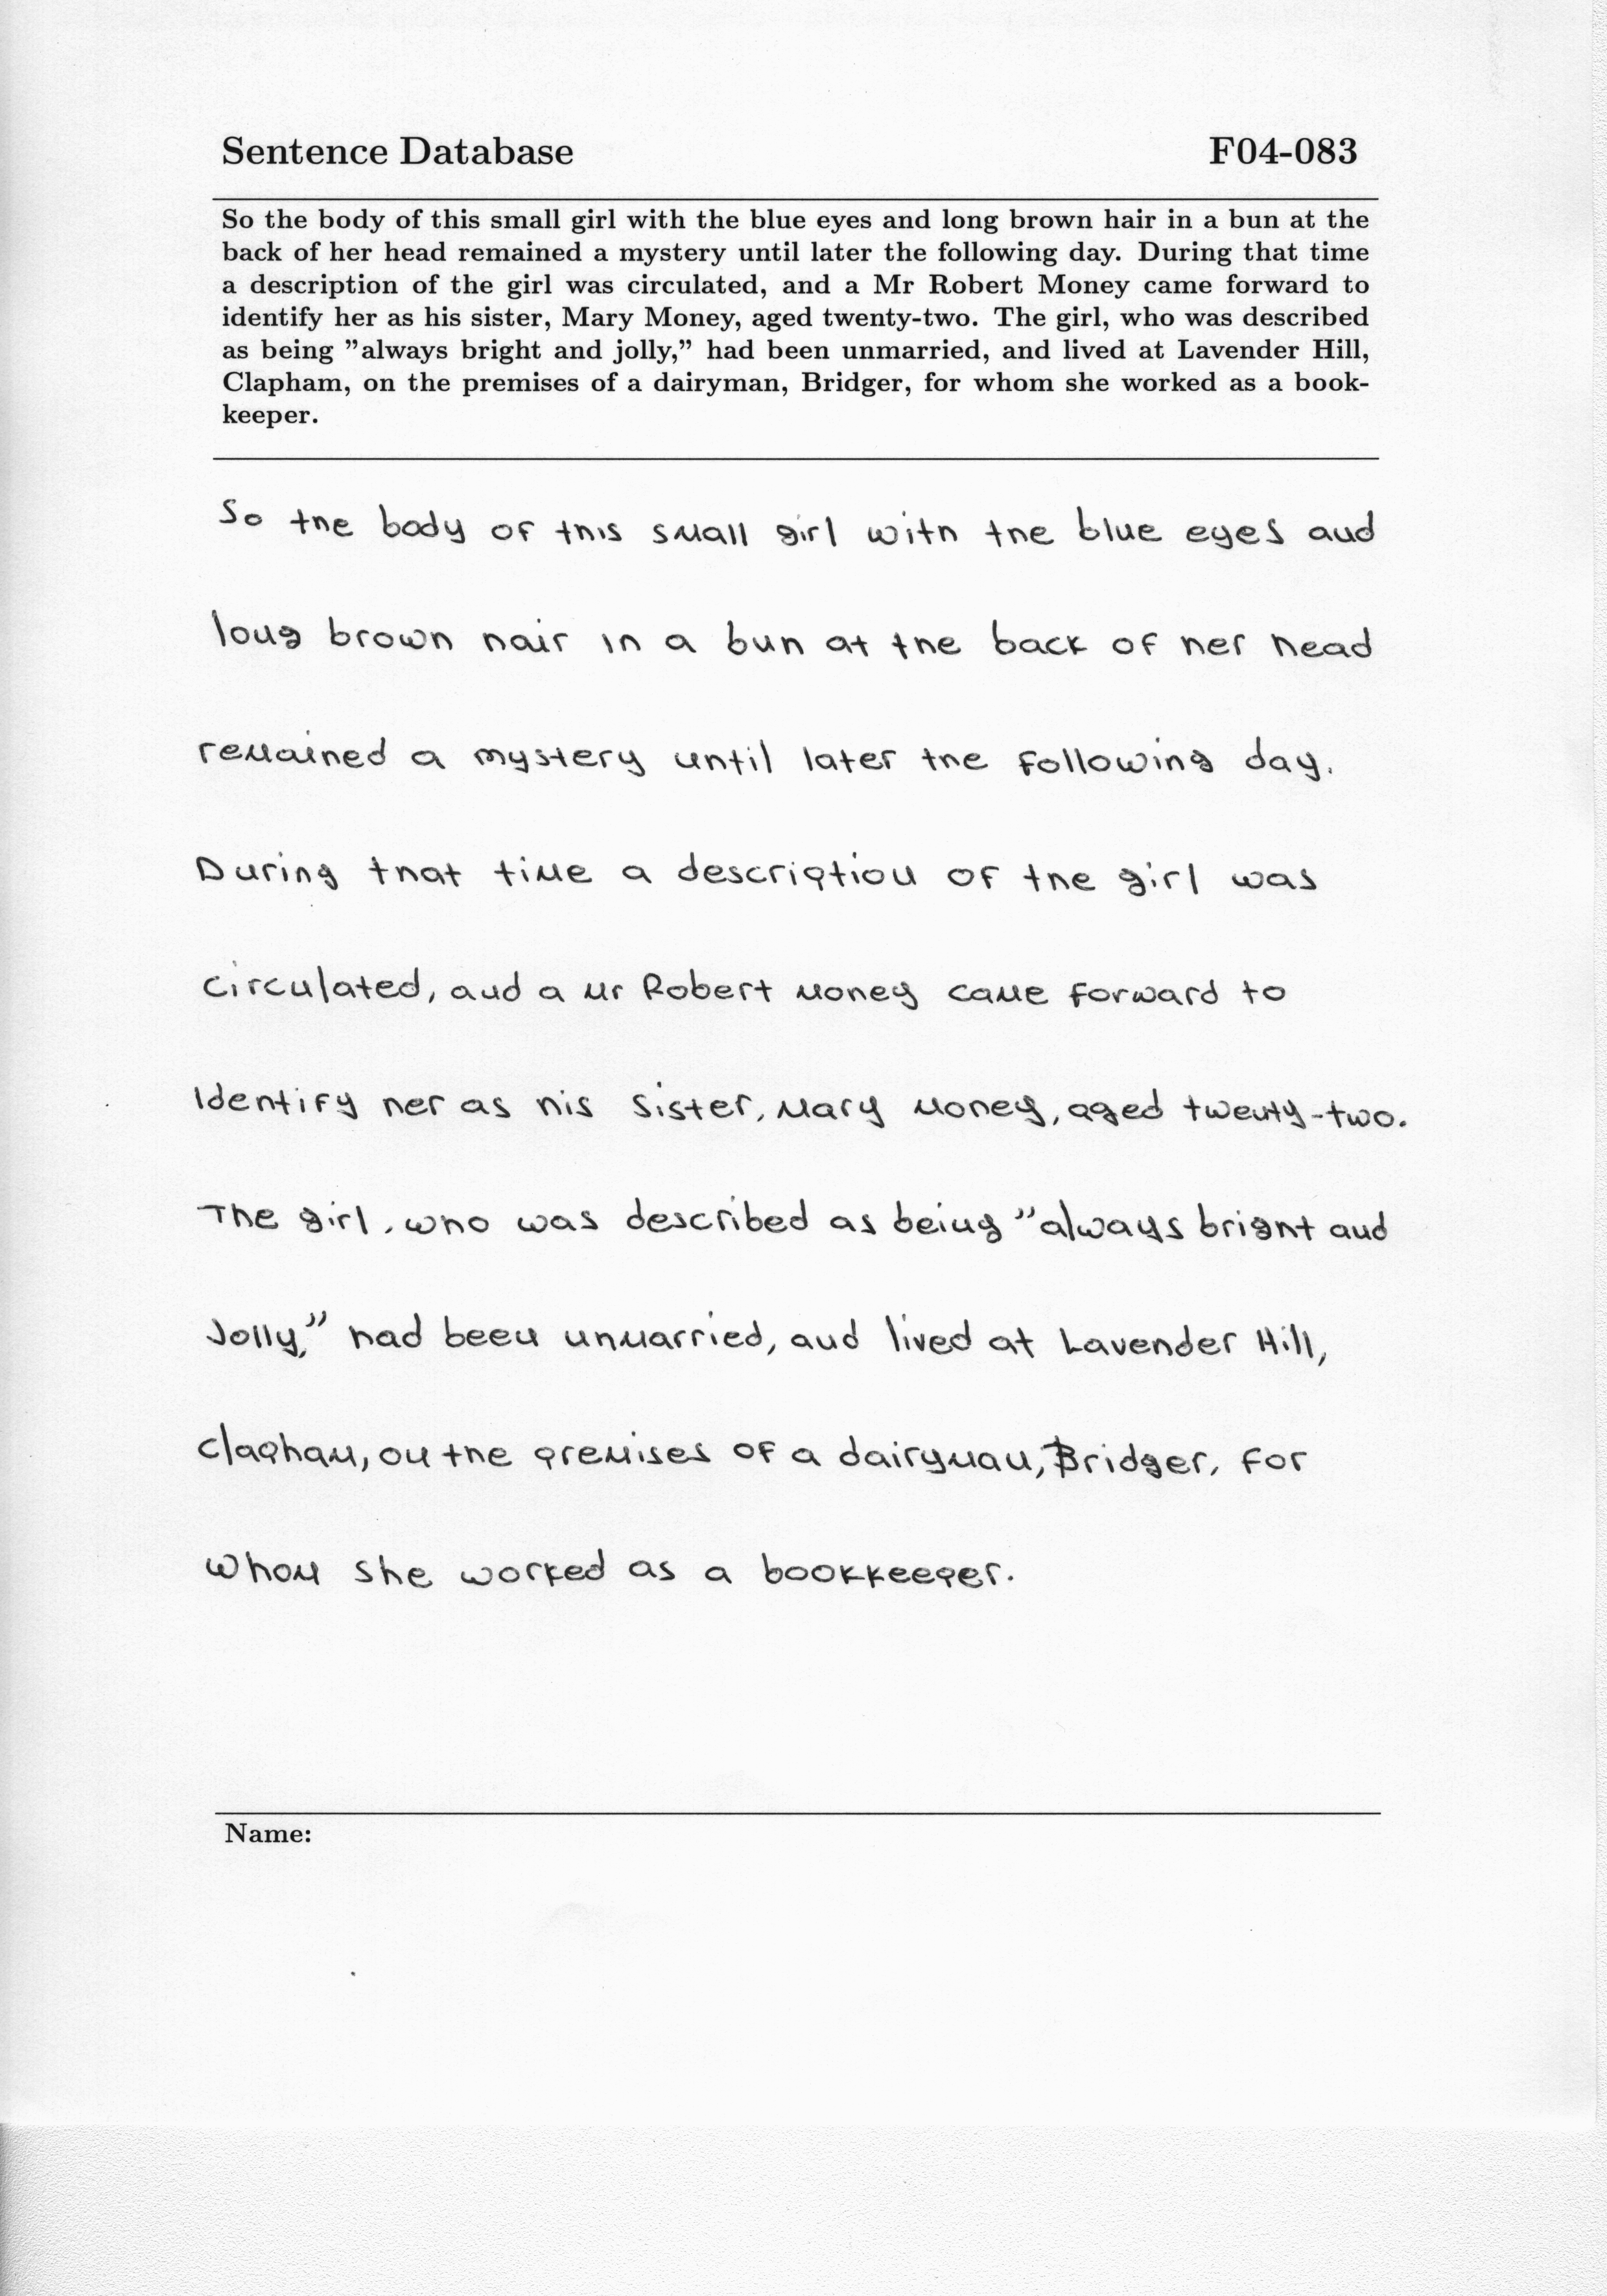 Sentence Database F04-083
So the body of this small girl with the blue eyes and long brown hair in a bun at the
back of her head remained a mystery until later the following day. During that time
a description of the girl was circulated, and a Mr Robert Money came forward to
identify her as his sister, Mary Money, aged twenty-two. The girl, who was described
as being "always bright and jolly," had been unmarried, and lived at Lavender Hill,
Clapham, on the premises of a dairyman, Bridger, for whom she worked as a book-
keeper.
So the body of this small girl with the blue eyes and
long brown hair in a bun at the back of her head
remained a mystery until later the following day.
During that time a description of the girl was
circulated, and a Mr Robert Money came forward to
identify her as his sister, Mary Money, aged twenty-two.
The girl, who was described as being "always bright and
jolly," had been unmarried, and lived at Lavender Hill,
Clapham, on the premises of a dairyman, Bridger, for
whom she worked as a bookkeeper.
Name: